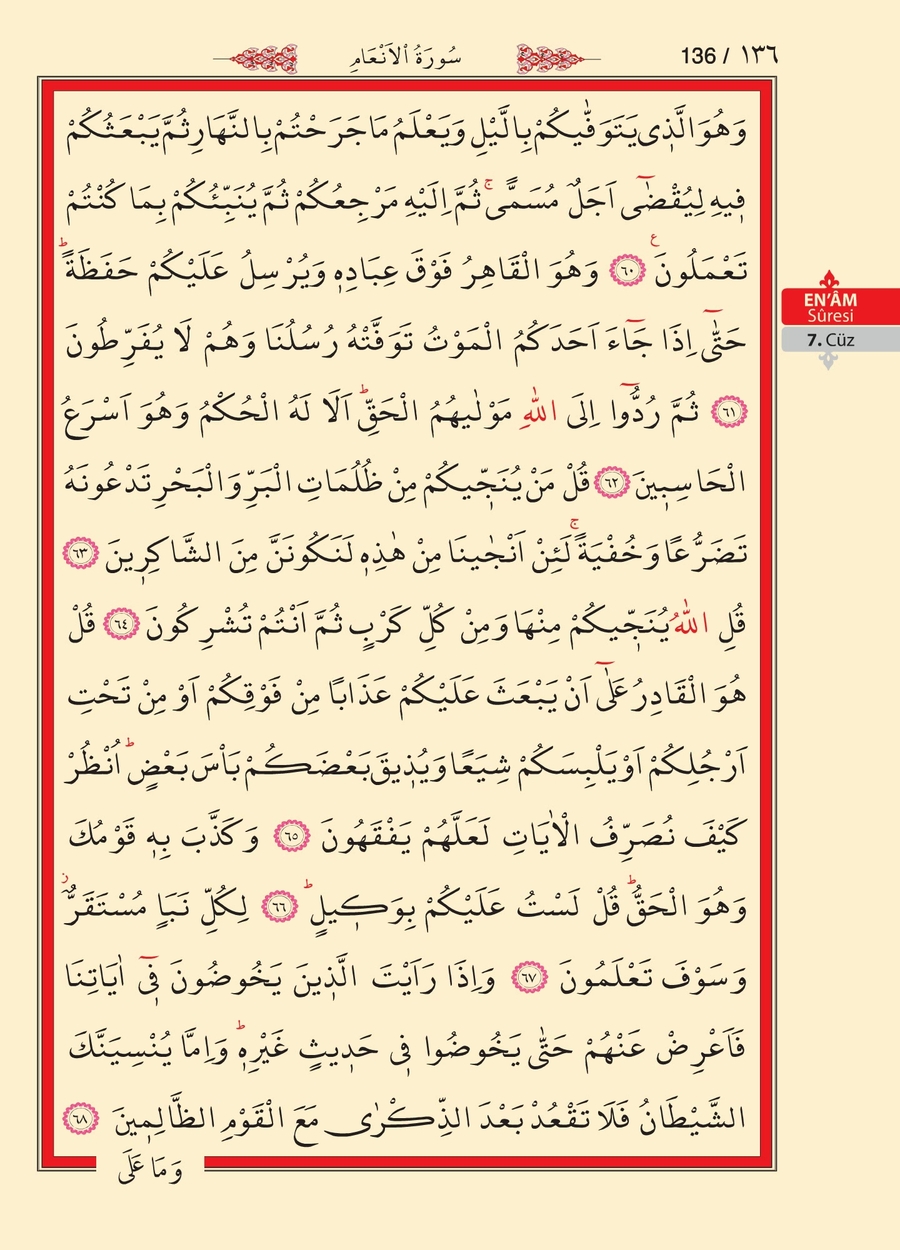 136 / ١٣٦
سُورَةُ الْاَنْعَامِ
وَهُوَ الَّذ۪ى يَتَوَفّٰيكُمْ بِالَّيْلِ وَيَعْلَمُ مَا جَرَحْتُمْ بِالنَّهَارِ ثُمَّ يَبْعَثُكُمْ
ف۪يهِ لِيُقْضٰٓى اَجَلٌ مُسَمًّىۚ ثُمَّ اِلَيْهِ مَرْجِعُكُمْ ثُمَّ يُنَبِّئُكُمْ بِمَا كُنْتُمْ
تَعْمَلُونَ ﴿٦٠﴾ ع وَهُوَ الْقَاهِرُ فَوْقَ عِبَادِه۪ وَيُرْسِلُ عَلَيْكُمْ حَفَظَةًۜ
حَتّٰٓى اِذَا جَٓاءَ اَحَدَكُمُ الْمَوْتُ تَوَفَّتْهُ رُسُلُنَا وَهُمْ لَا يُفَرِّطُونَ
﴿٦١﴾ ثُمَّ رُدُّٓوا اِلَى اللّٰهِ مَوْلٰيهُمُ الْحَقِّۜ اَلَا لَهُ الْحُكْمُ وَهُوَ اَسْرَعُ
الْحَاسِب۪ينَ ﴿٦٢﴾ قُلْ مَنْ يُنَجّ۪يكُمْ مِنْ ظُلُمَاتِ الْبَرِّ وَالْبَحْرِ تَدْعُونَهُ
تَضَرُّعًا وَخُفْيَةًۚ لَئِنْ اَنْجٰينَا مِنْ هٰذِه۪ لَنَكُونَنَّ مِنَ الشَّاكِر۪ينَ ﴿٦٣﴾
قُلِ اللّٰهُ يُنَجّ۪يكُمْ مِنْهَا وَمِنْ كُلِّ كَرْبٍ ثُمَّ اَنْتُمْ تُشْرِكُونَ ﴿٦٤﴾ قُلْ
هُوَ الْقَادِرُ عَلٰٓى اَنْ يَبْعَثَ عَلَيْكُمْ عَذَابًا مِنْ فَوْقِكُمْ اَوْ مِنْ تَحْتِ
اَرْجُلِكُمْ اَوْ يَلْبِسَكُمْ شِيَعًا وَيُذ۪يقَ بَعْضَكُمْ بَأْسَ بَعْضٍۜ اُنْظُرْ
كَيْفَ نُصَرِّفُ الْاٰيَاتِ لَعَلَّهُمْ يَفْقَهُونَ ﴿٦٥﴾ وَكَذَّبَ بِه۪ قَوْمُكَ
وَهُوَ الْحَقُّۜ قُلْ لَسْتُ عَلَيْكُمْ بِوَك۪يلٍۜ ﴿٦٦﴾ لِكُلِّ نَبَاٍ مُسْتَقَرٌّۘ
وَسَوْفَ تَعْلَمُونَ ﴿٦٧﴾ وَاِذَا رَاَيْتَ الَّذ۪ينَ يَخُوضُونَ ف۪ٓى اٰيَاتِنَا
فَاَعْرِضْ عَنْهُمْ حَتّٰى يَخُوضُوا ف۪ى حَد۪يثٍ غَيْرِه۪ۜ وَاِمَّا يُنْسِيَنَّكَ
الشَّيْطَانُ فَلَا تَقْعُدْ بَعْدَ الذِّكْرٰى مَعَ الْقَوْمِ الظَّالِم۪ينَ ﴿٦٨﴾
وَمَا عَلَى
EN'ÂM
Sûresi
7. Cüz